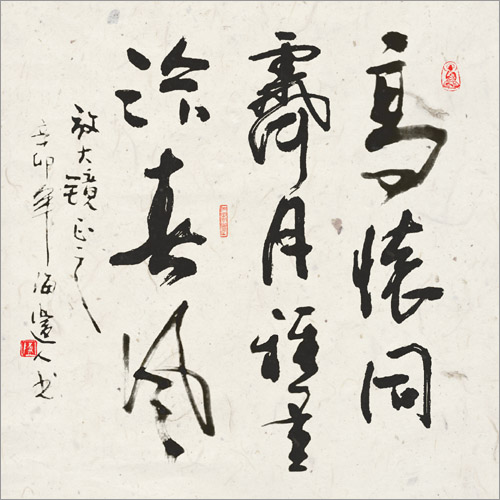 高懷同
霽月雅量
洽春風
放大鏡正之
辛卯年海邊人书